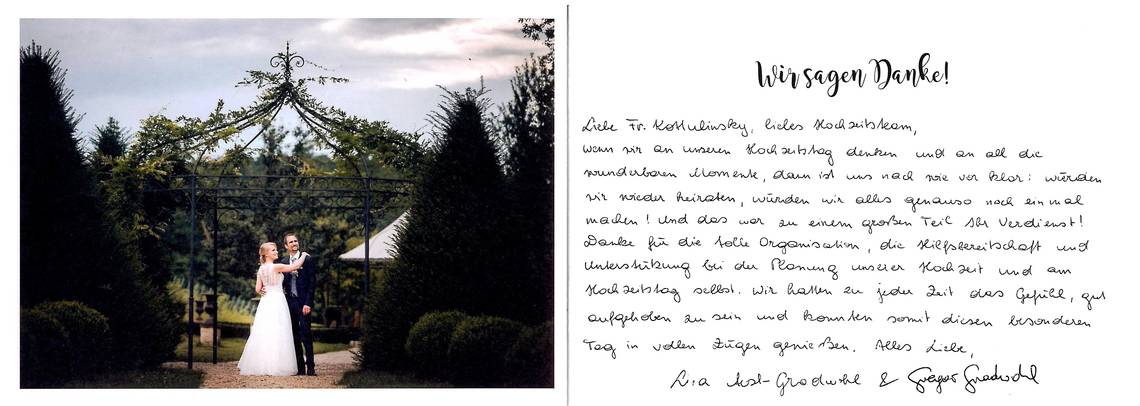 Wir sagen Danke!
Liebe Fr. Kottulinsky, liebes Hochzeitsteam,
wenn wir an unseren Hochzeitstag denken und an all die
wunderbaren Momente, dann ist uns nach wie vor klar: würden
wir wieder heiraten, würden wir alles genauso noch einmal
machen! Und das war zu einem großen Teil Ihr Verdienst!
Danke für die tolle Organisation, die Hilfsbereitschaft und
Unterstützung bei der Planung unserer Hochzeit und am
Hochzeitstag selbst. Wir hatten zu jeder Zeit das Gefühl, gut
aufgehoben zu sein und konnten somit diesen besonderen
Tag in vollen Zügen genießen. Alles Liebe,
& Gregor Gradwohl